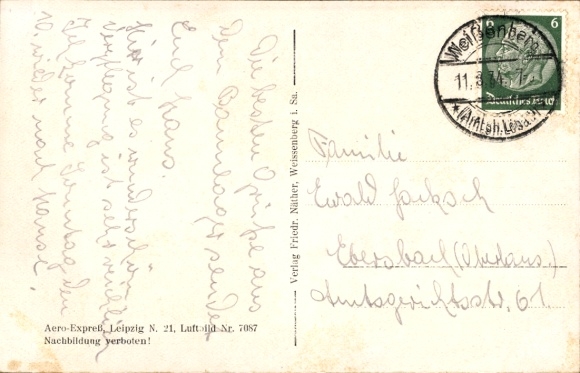 Die besten Grüße aus
dem Bannlager sendet
Euch Hans.
Hier ist es wunderschön
Verpflegung ist sehr reichlich
Ich komme Sonntag den
wieder nach Hause!
Aero-Expreß, Leipzig N. 21, Luftbild Nr. 7087
Nachbildung verboten!
Verlag Friedr. Näther, Weissenberg i. Sa.
6 6
Deutsches Reich
Weißenberg
11. 8. 34. 7-
(Amtsh. Löbau)
Familie
Ewald Jacksch
Ebersbach (Oberlaus.)
Amtsgerichtsstr. 61.